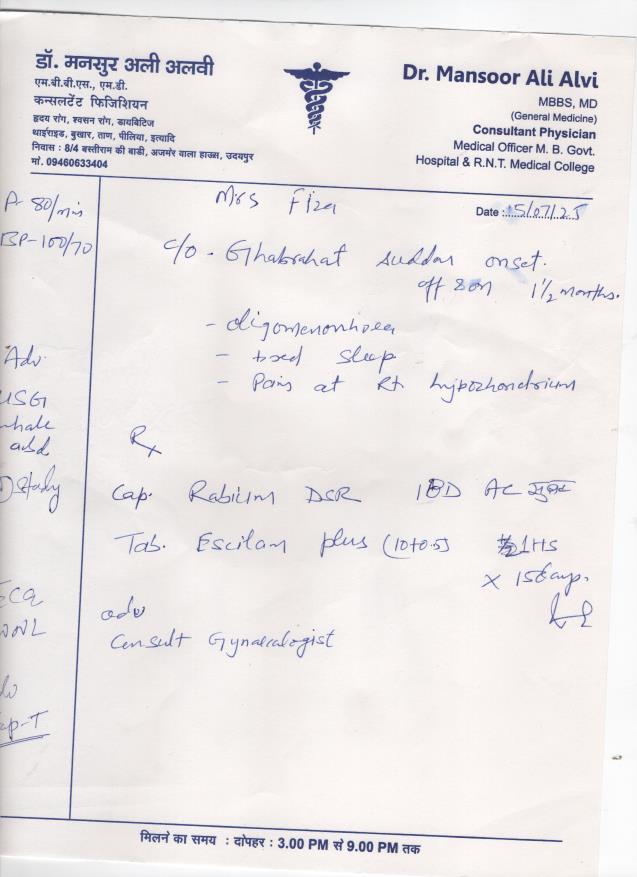 डॉ. मनसुर अली अलवी
एम.बी.बी.एस., एम.डी.
कन्सलटेंट फिजिशियन
हृदय रोग, श्वसन रोग, डायबिटिज
थाईराइड, बुखार, ताण, पीलिया, इत्यादि
निवास : 8/4 बस्तीराम की बाडी, अजमेर वाला हाउस, उदयपुर
मो. 09460633404
Dr. Mansoor Ali Alvi
MBBS, MD
(General Medicine)
Consultant Physician
Medical Officer M. B. Govt.
Hospital & R.N.T. Medical College
P- 80/min
BP-100/70
Mrs Fiza
Date : 15/07/25
c/o - Ghabrahat sudden onset.
off & on 1½ months.
- oligomenorrhoea
- sleep
- Pain at Rt hypochondrium
Adv.
USG
whole
abd
study
Rx
Cap. Rabium DSR 1BD AC
Tab. Escilam plus (10+0.5) 1HS
x 15days.
adv
Consult Gynaecologist
ECG
WNL
मिलने का समय : दोपहर : 3.00 PM से 9.00 PM तक